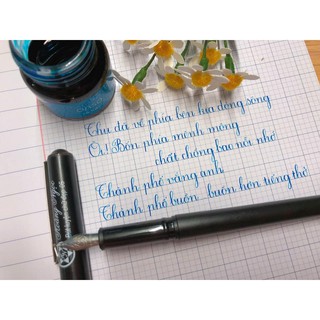 Thu đã về phía bên kia dòng sông
Ơi! Bốn phía mênh mông
chất chồng bao nỗi nhớ
Thành phố vắng anh
Thành phố buồn buồn hơn tiếng thở